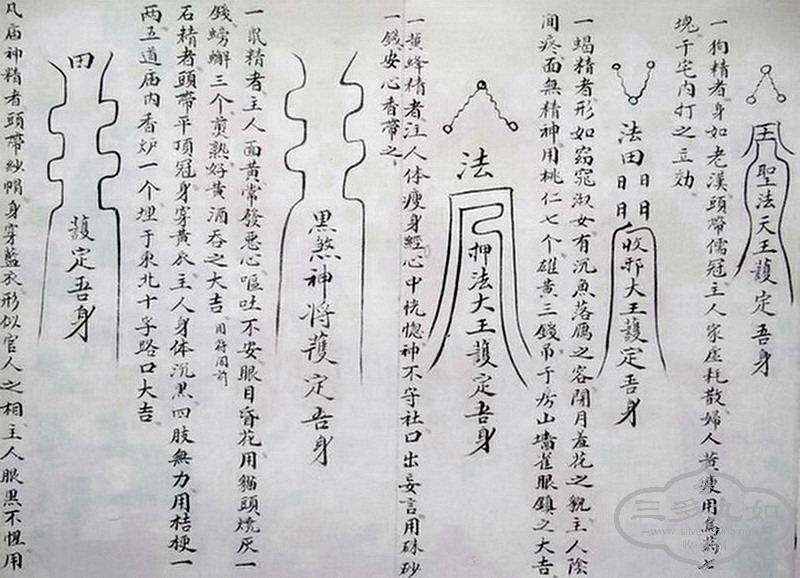 王聖法天王護定吾身
一狗精者身如老漢頭帶儒冠主人家虛耗散婦人黃瘦用烏鷄七
塊于宅内打之立効
法田日日日日收邪大王護定吾身
一蝎精者形如窈窕淑女有沉魚落鴈之容閉月羞花之貌主人陰
间疼面無精神用桃仁七个雄黃三錢吊于房山墻雀眼鎮之大吉
法押法大王護定吾身
一黃蜂精者注人体瘦身經心中恍惚神不守社口出妄言用硃砂
一錢安心香帶之
黑煞神将護定吾身
一䑕精者主人面黃常發恶心嘔吐不安眼目昏花用貓頭燒灰一
錢螃蠏三个煎熟好黃酒吞之大吉
石精者頭帶平頂冠身穿黃衣主人身体沉黑四肢無力用桔梗一
两五道庙内香炉一个埋于東北十字路口大吉
田護定吾身
凡庙神精者頭帶紗帽身穿藍衣形似官人之相主人眼黑不惺用
三多九如